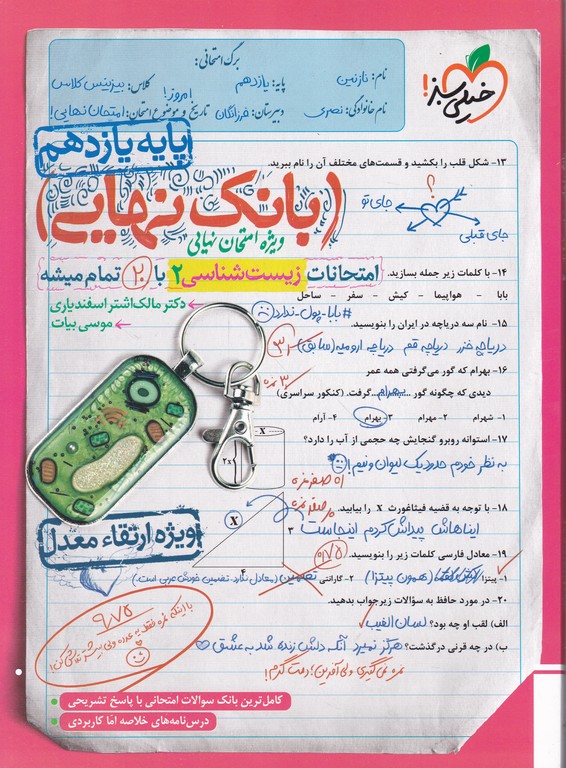 برگ امتحانی:
نام: نازنین
پایه: یازدهم
کلاس: بیزنیس کلاس
نام خانوادگی: نصری
دبیرستان: فرزانگان
تاریخ و موضوع امتحان: امروز! امتحان نهایی!
خیلی سبز!
پایه یازدهم
۱۳- شکل قلب را بکشید و قسمت‌های مختلف آن را نام ببرید.
؟
جای تو
جای قبلی
(بانک نهایی)
ویژه امتحان نهایی
امتحانات زیست‌شناسی ۲ با ۲۰ تمام میشه
دکتر مالک‌اشتر اسفندیاری
موسی بیات
۱۴- با کلمات زیر جمله بسازید.
بابا - هواپیما - کیش - سفر - ساحل
#بابا_پول_ندارد
۱۵- نام سه دریاچه در ایران را بنویسید.
دریاچه خزر دریاچه قم دریاچه ارومیه (سابق)
۱۶- بهرام که گور می‌گرفتی همه عمر
دیدی که چگونه گور ...بهرام... گرفت. (کنکور سراسری)
۳ نمره
۱- شهرام ۲- مهرام ۳- بهرام ۴- آرام
۱۷- استوانه روبرو گنجایش چه حجمی از آب را دارد؟
X
۲X
به نظر خودم حدود یک لیوان و نیم!
۱۸- با توجه به قضیه فیثاغورث X را بیابید.
ایناهاش پیداش کردم اینجاست
X
۳
۴
ویژه ارتقاء معدل
۱۹- معادل فارسی کلمات زیر را بنویسید.
۰/۷۵
۱- پیتزا (همون پیتزا) ۲- گارانتی تضمین (معادل ندارد. تضمین خودش عربی است)
۲۰- در مورد حافظ به سؤالات زیر جواب بدهید.
الف) لقب او چه بود؟ لسان الغیب
ب) در چه قرنی درگذشت؟ هرگز نمیرد آنکه دلش زنده شد به عشق
نمره نمی‌گیری ولی آفرین! دمت گرم!
۹/۷۵
کامل‌ترین بانک سوالات امتحانی با پاسخ تشریحی
درس‌نامه‌های خلاصه امّا کاربردی